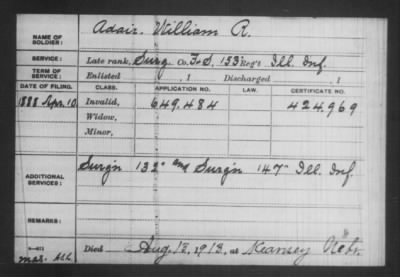 NAME OF SOLDIER: Adair, William R.
SERVICE: Late rank, Surg Co. F&S, 153 Reg't Ill. Inf.
TERM OF SERVICE: Enlisted , 1 Discharged , 1
DATE OF FILING. CLASS. APPLICATION NO. LAW. CERTIFICATE NO.
1888 Apr. 10. Invalid, 649.484 424.969
Widow,
Minor,
ADDITIONAL SERVICES: Surg'n 132" and Surg'n 147" Ill. Inf.
REMARKS:
Died Aug. 12, 1913, at Kearney Nebr.